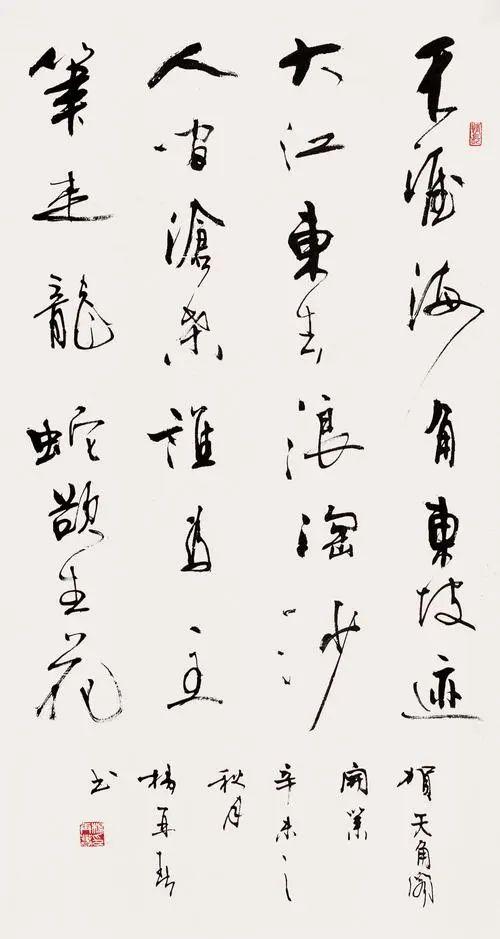 天涯海角東坡迹
大江東去浪淘沙
人間滄桑誰為主
筆走龍蛇生花
賀天角閣
開業
辛未之
秋月
楊再春
书